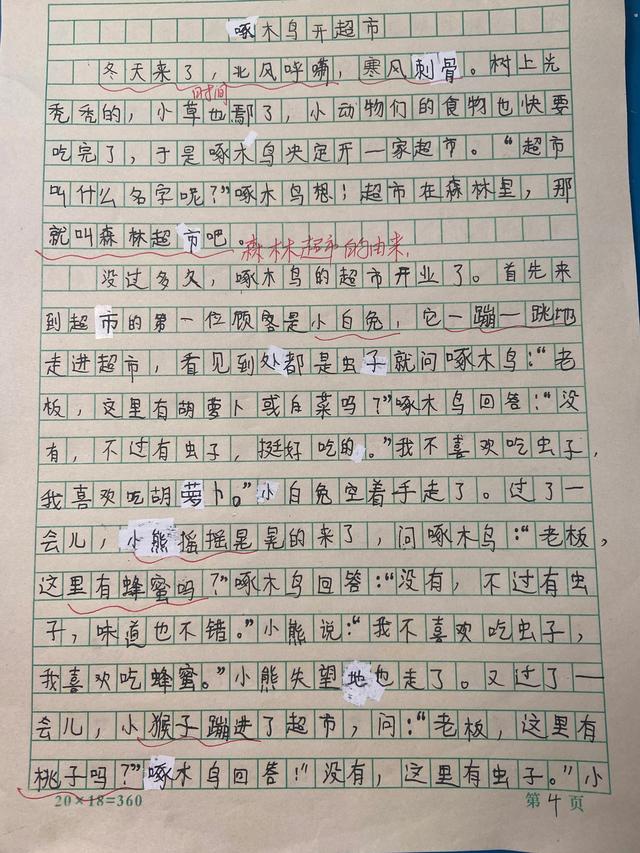 啄木鸟开超市
冬天来了，北风呼啸，寒风刺骨。树上光
时间
秃秃的，小草也蔫了，小动物们的食物也快要
吃完了，于是啄木鸟决定开一家超市。“超市
叫什么名字呢？”啄木鸟想！超市在森林里，那
就叫森林超市吧。
森林超市的由来.
没过多久，啄木鸟的超市开业了。首先来
到超市的第一位顾客是小白兔，它一蹦一跳地
走进超市，看见到处都是虫子就问啄木鸟：“老
板，这里有胡萝卜或白菜吗？”啄木鸟回答：“没
有，不过有虫子，挺好吃的。”我不喜欢吃虫子，
我喜欢吃胡萝卜。”小白兔空着手走了。过了一
会儿，小熊摇摇晃晃的来了，问啄木鸟：“老板，
这里有蜂蜜吗？”啄木鸟回答：“没有，不过有虫
子，味道也不错。”小熊说：“我不喜欢吃虫子，
我喜欢吃蜂蜜。”小熊失望地也走了。又过了一
会儿，小猴子蹦进了超市，问：“老板，这里有
桃子吗？”啄木鸟回答：“没有，这里有虫子。”小
20×18=360
第4页